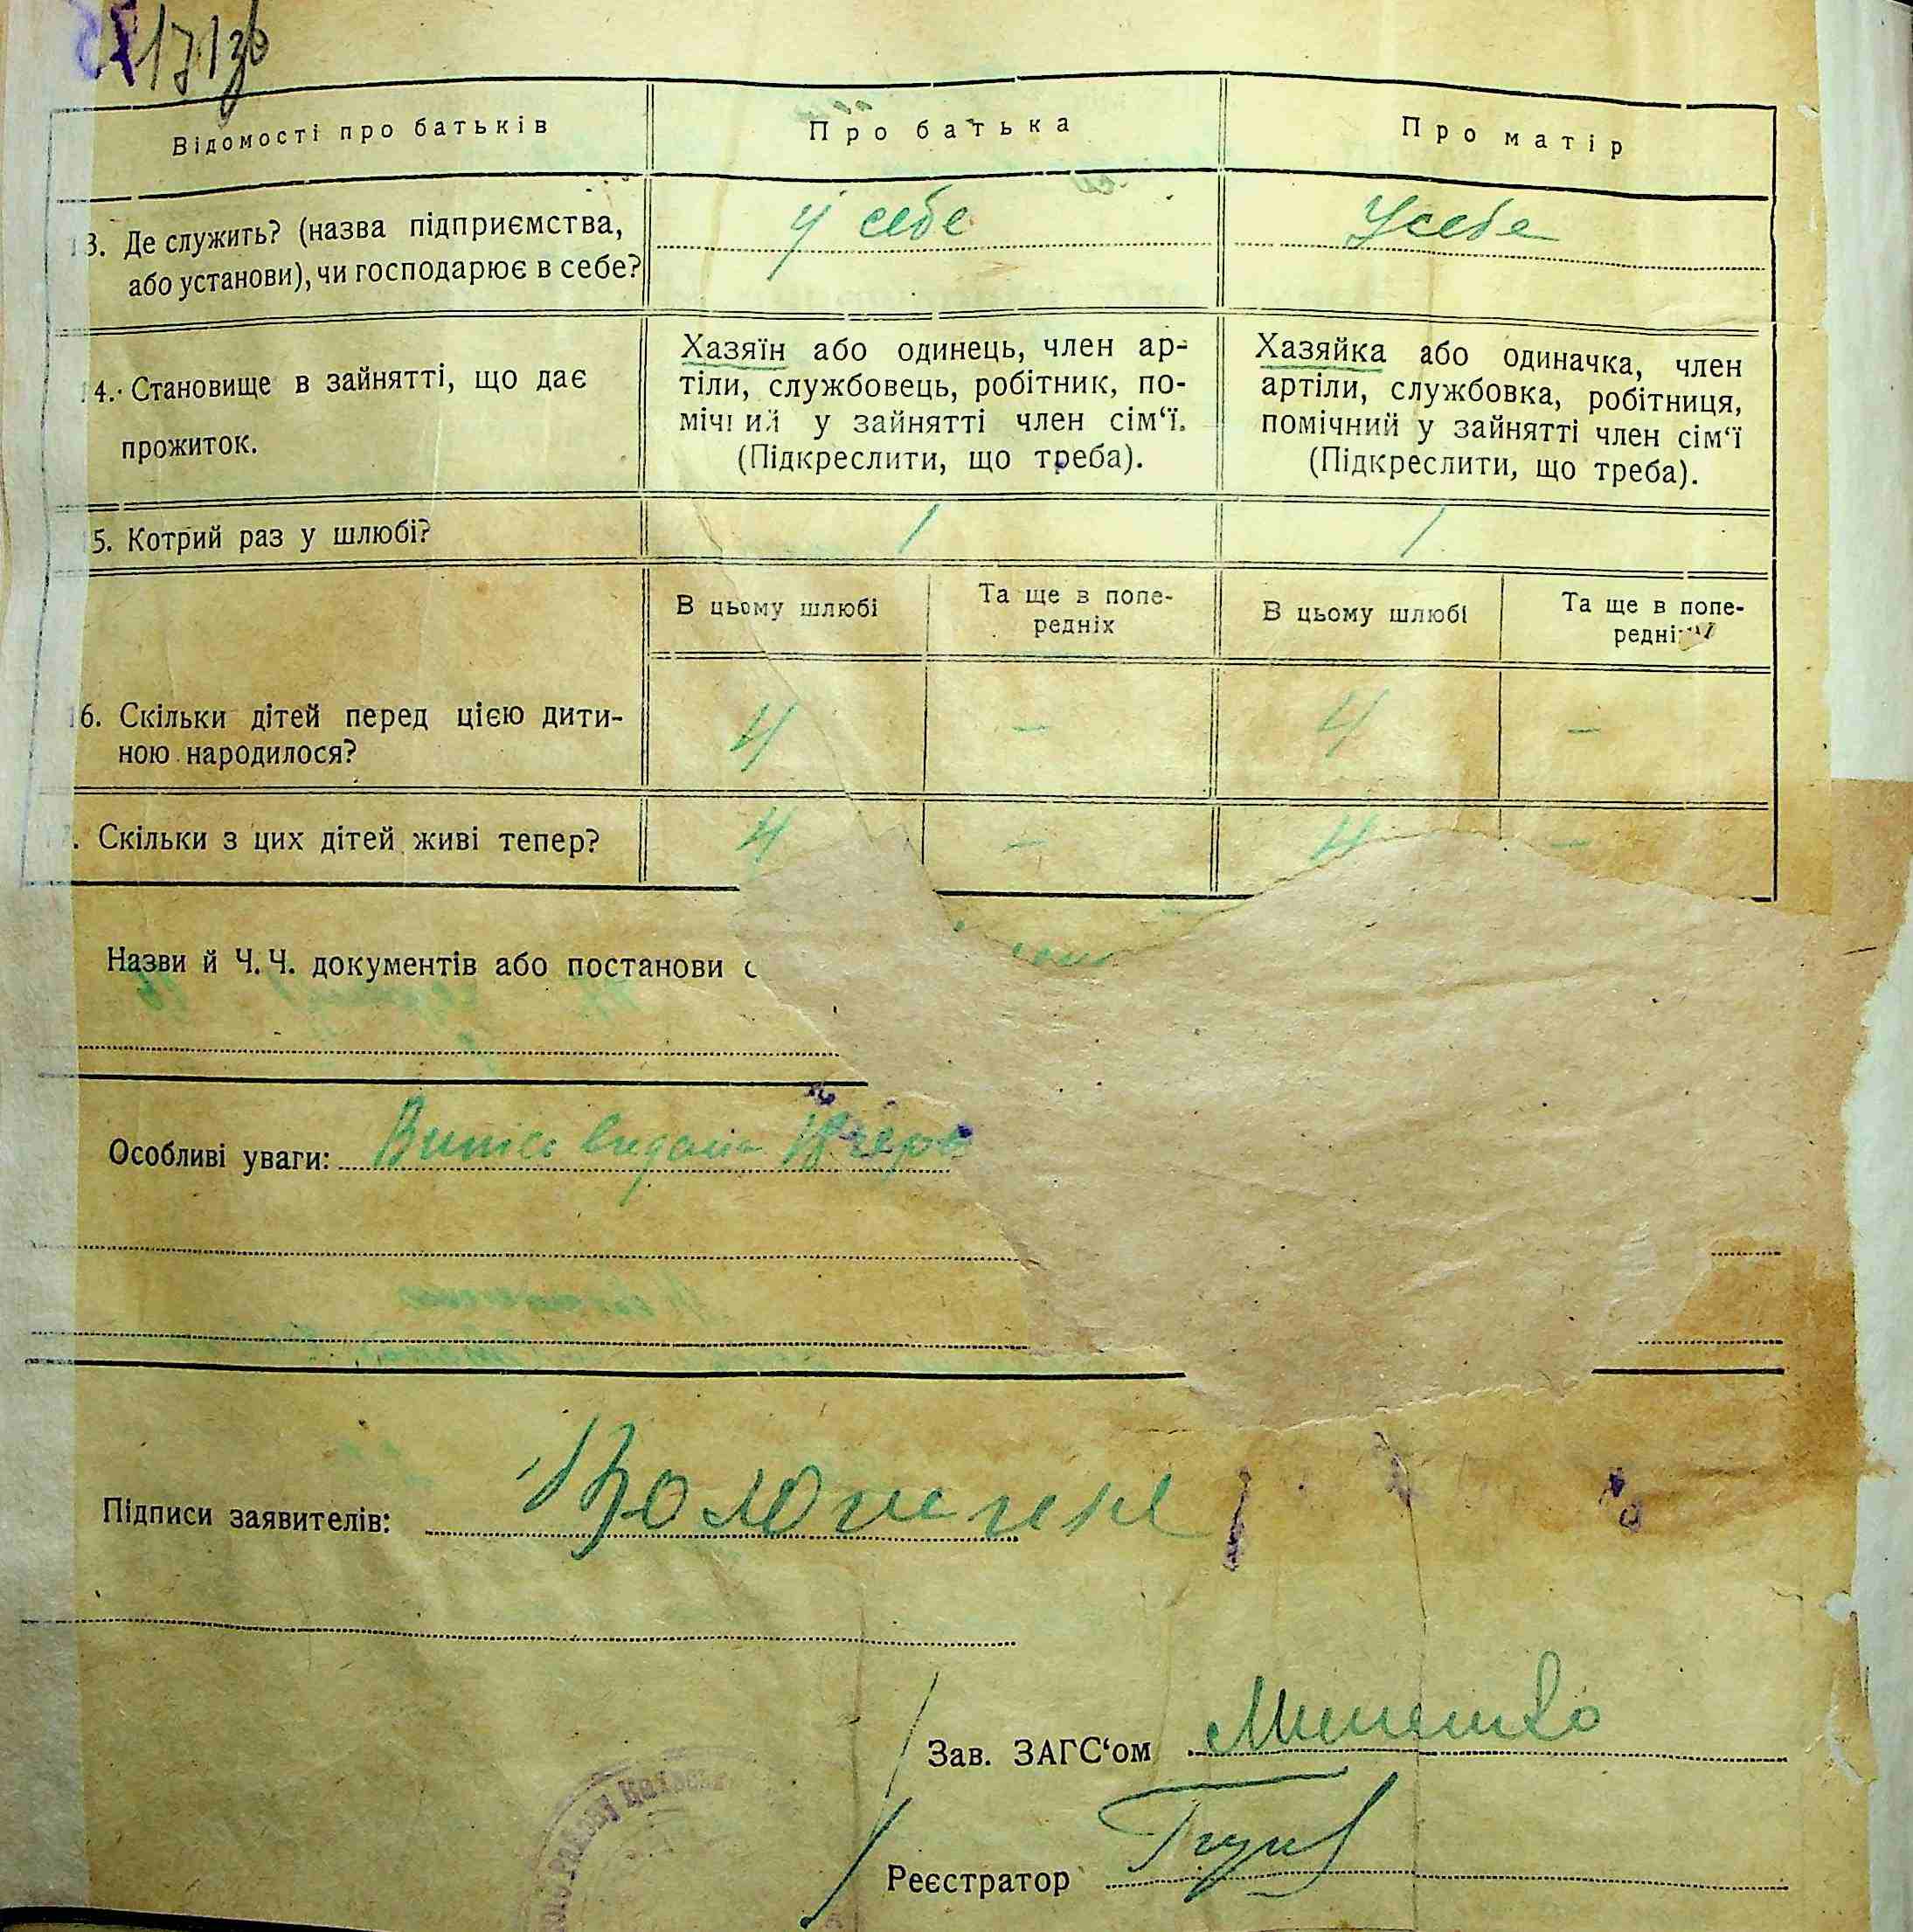 171зв
Відомості про батьків
Про батька
Про матір
13. Де служить? (назва підприємства,
або установи), чи господарює в себе?
у себе
Усебе
14. Становище в зайнятті, що дає
прожиток.
Хазяїн або одинець, член ар-
тіли, службовець, робітник, по-
мічний у зайнятті член сім‘ї.
(Підкреслити, що треба).
Хазяйка або одиначка, член
артіли, службовка, робітниця,
помічний у зайнятті член сім‘ї
(Підкреслити, що треба).
5. Котрий раз у шлюбі?
1
1
В цьому шлюбі
Та ще в попе-
редніх
В цьому шлюбі
Та ще в попе-
редні
16. Скільки дітей перед цією дити-
ною народилося?
4 — 4 —
. Скільки з цих дітей живі тепер?
4 — 4 —
Назви й Ч.Ч. документів або постанови с
Особливі уваги: Випис видано
Підписи заявителів:
Зав. ЗАГС‘ом
Реєстратор